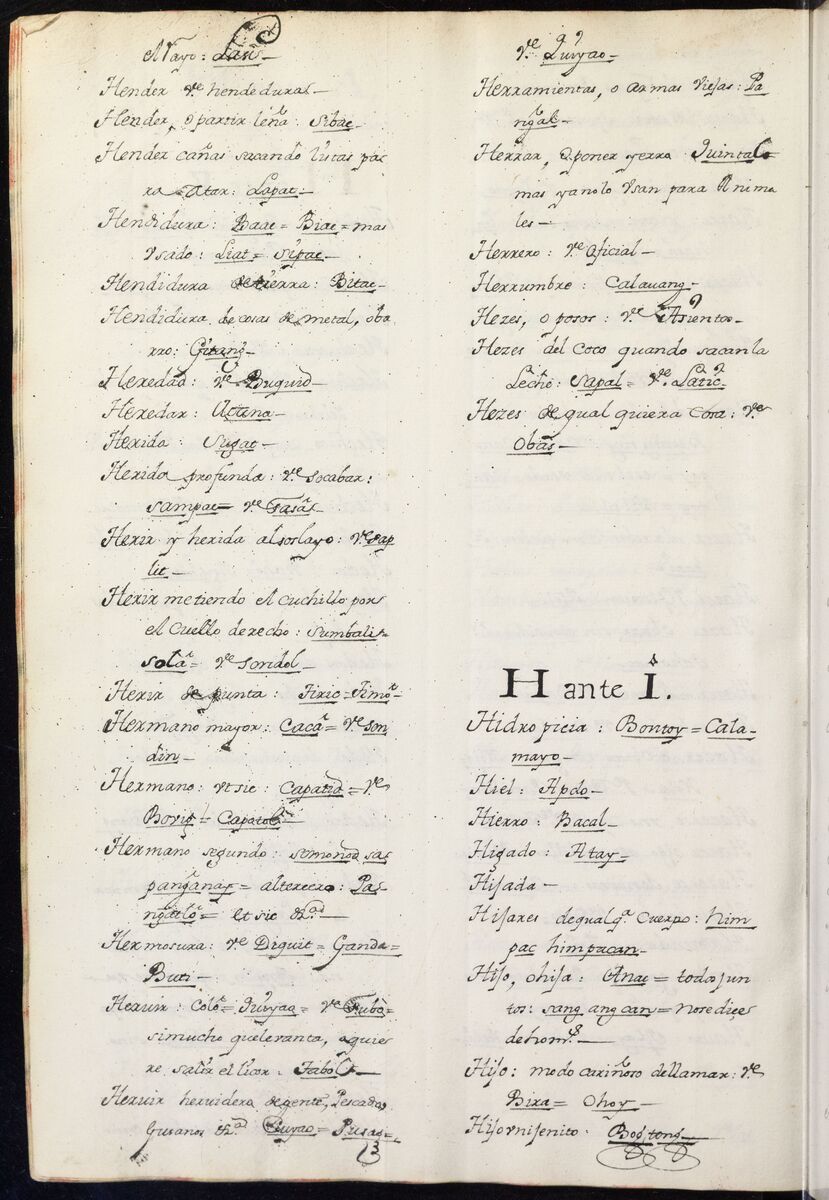 el rayo: Laris_
Hender v.e hendeduras_
Hender, o partir leña: sibac_
Hender cañas sacando listas pa=
ra atar: Lapat:_
Hendidura: Baac= Biac= mas
vsado: Liat= sipac_
Hendidura de tierra: Bitac_
Hendidura de cosas de metal, o ba
rro: Gitang_
Heredad: v.e Buguid_
Heredar:
Herida: sugat_
Herida profunda: v.e socabar:
sampac= v.e Tasàs_
Herir y herida al soslayo: v.e sap
lit_
Herir metiendo el cuchillo por
el cuello derecho: sumbali=
solà= v.e sondol_
Herir de punta: Tiric=Timò_
Hermano mayor: Cacà= v.e son
din_
Hermano: vt sic: Capatid= v.e
Hermano segundo: somonod sa
panganay= al tercero: Pa
ngatlo= et sic &.a_
Hermosura: v.e Diquit= Ganda=
Buti_
Heruir: colò= quiyao= v.e Subò=
si mucho que leuanta, o quie
re salir el licor: Tabol_
Heruir heruidero de gente, Pescados
Gusanos &.a Quiyao= Pusas=
v.e Quiyao_
Herramientas, o armas viejas: Pa
ngal_
Herrar, o poner yerro Quintal=
mas ya no lo vsan para Anima
les_
Herrero: v.e Oficial_
Herrumbre: Calauang_
Hezes, o posos: v.e Asientos_
Hezes del coco quando sacan la
Leche: sapal= v.e Latic_
Hezes de qual quiera cosa: v.e
Obas_
H ante I.
Hidropicia: Bontoy= Cala=
mayo_
Hiel: Apdo_
Hierro: Bacal_
Higado: Atay_
Hijada_
Hijares de qualq.a cuerpo: him
pac himpacan_
Hijo, o hija: Anac= todos jun
tos: sang angcan= no se dice
de hom.s_
Hijo: modo cariñoso de llamar: v.e
Bira= Ohoy_
Hijo vnijenito: Bogtong_